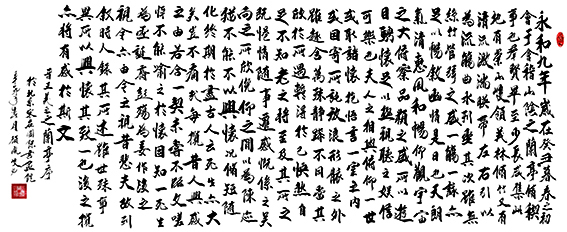 永和九年歲在癸丑暮春之初
會于會稽山陰之蘭亭脩禊
事也羣賢畢至少長咸集此
地有崇山峻領茂林脩竹又有
清流激湍暎帶左右引以
為流觴曲水列坐其次雖無
絲竹管弦之盛一觴一詠亦
足以暢敘幽情是日也天朗
氣清惠風和暢仰觀宇宙
之大俯察品類之盛所以遊
目騁懷足以極視聽之娛信
可樂也夫人之相與俯仰一世
或取諸懷抱悟言一室之內
或因寄所託放浪形骸之外
雖趣舍萬殊靜躁不同當其
欣於所遇暫得於己快然自
足不知老之將至及其所之
既惓情隨事遷感慨係之矣
向之所欣俛仰之間以為陳迹
猶不能不以之興懷況脩短隨
化終期於盡古人云死生亦大
矣豈不痛哉每攬昔人興感
之由若合一契未嘗不臨文嗟
悼不能喻之於懷固知一死生
為虛誕齊彭殤為妄作後之
視今亦由今之視昔悲夫故列
敘時人錄其所述雖世殊事
異所以興懷其致一也後之攬
亦將有感於斯文
王羲之蘭亭序